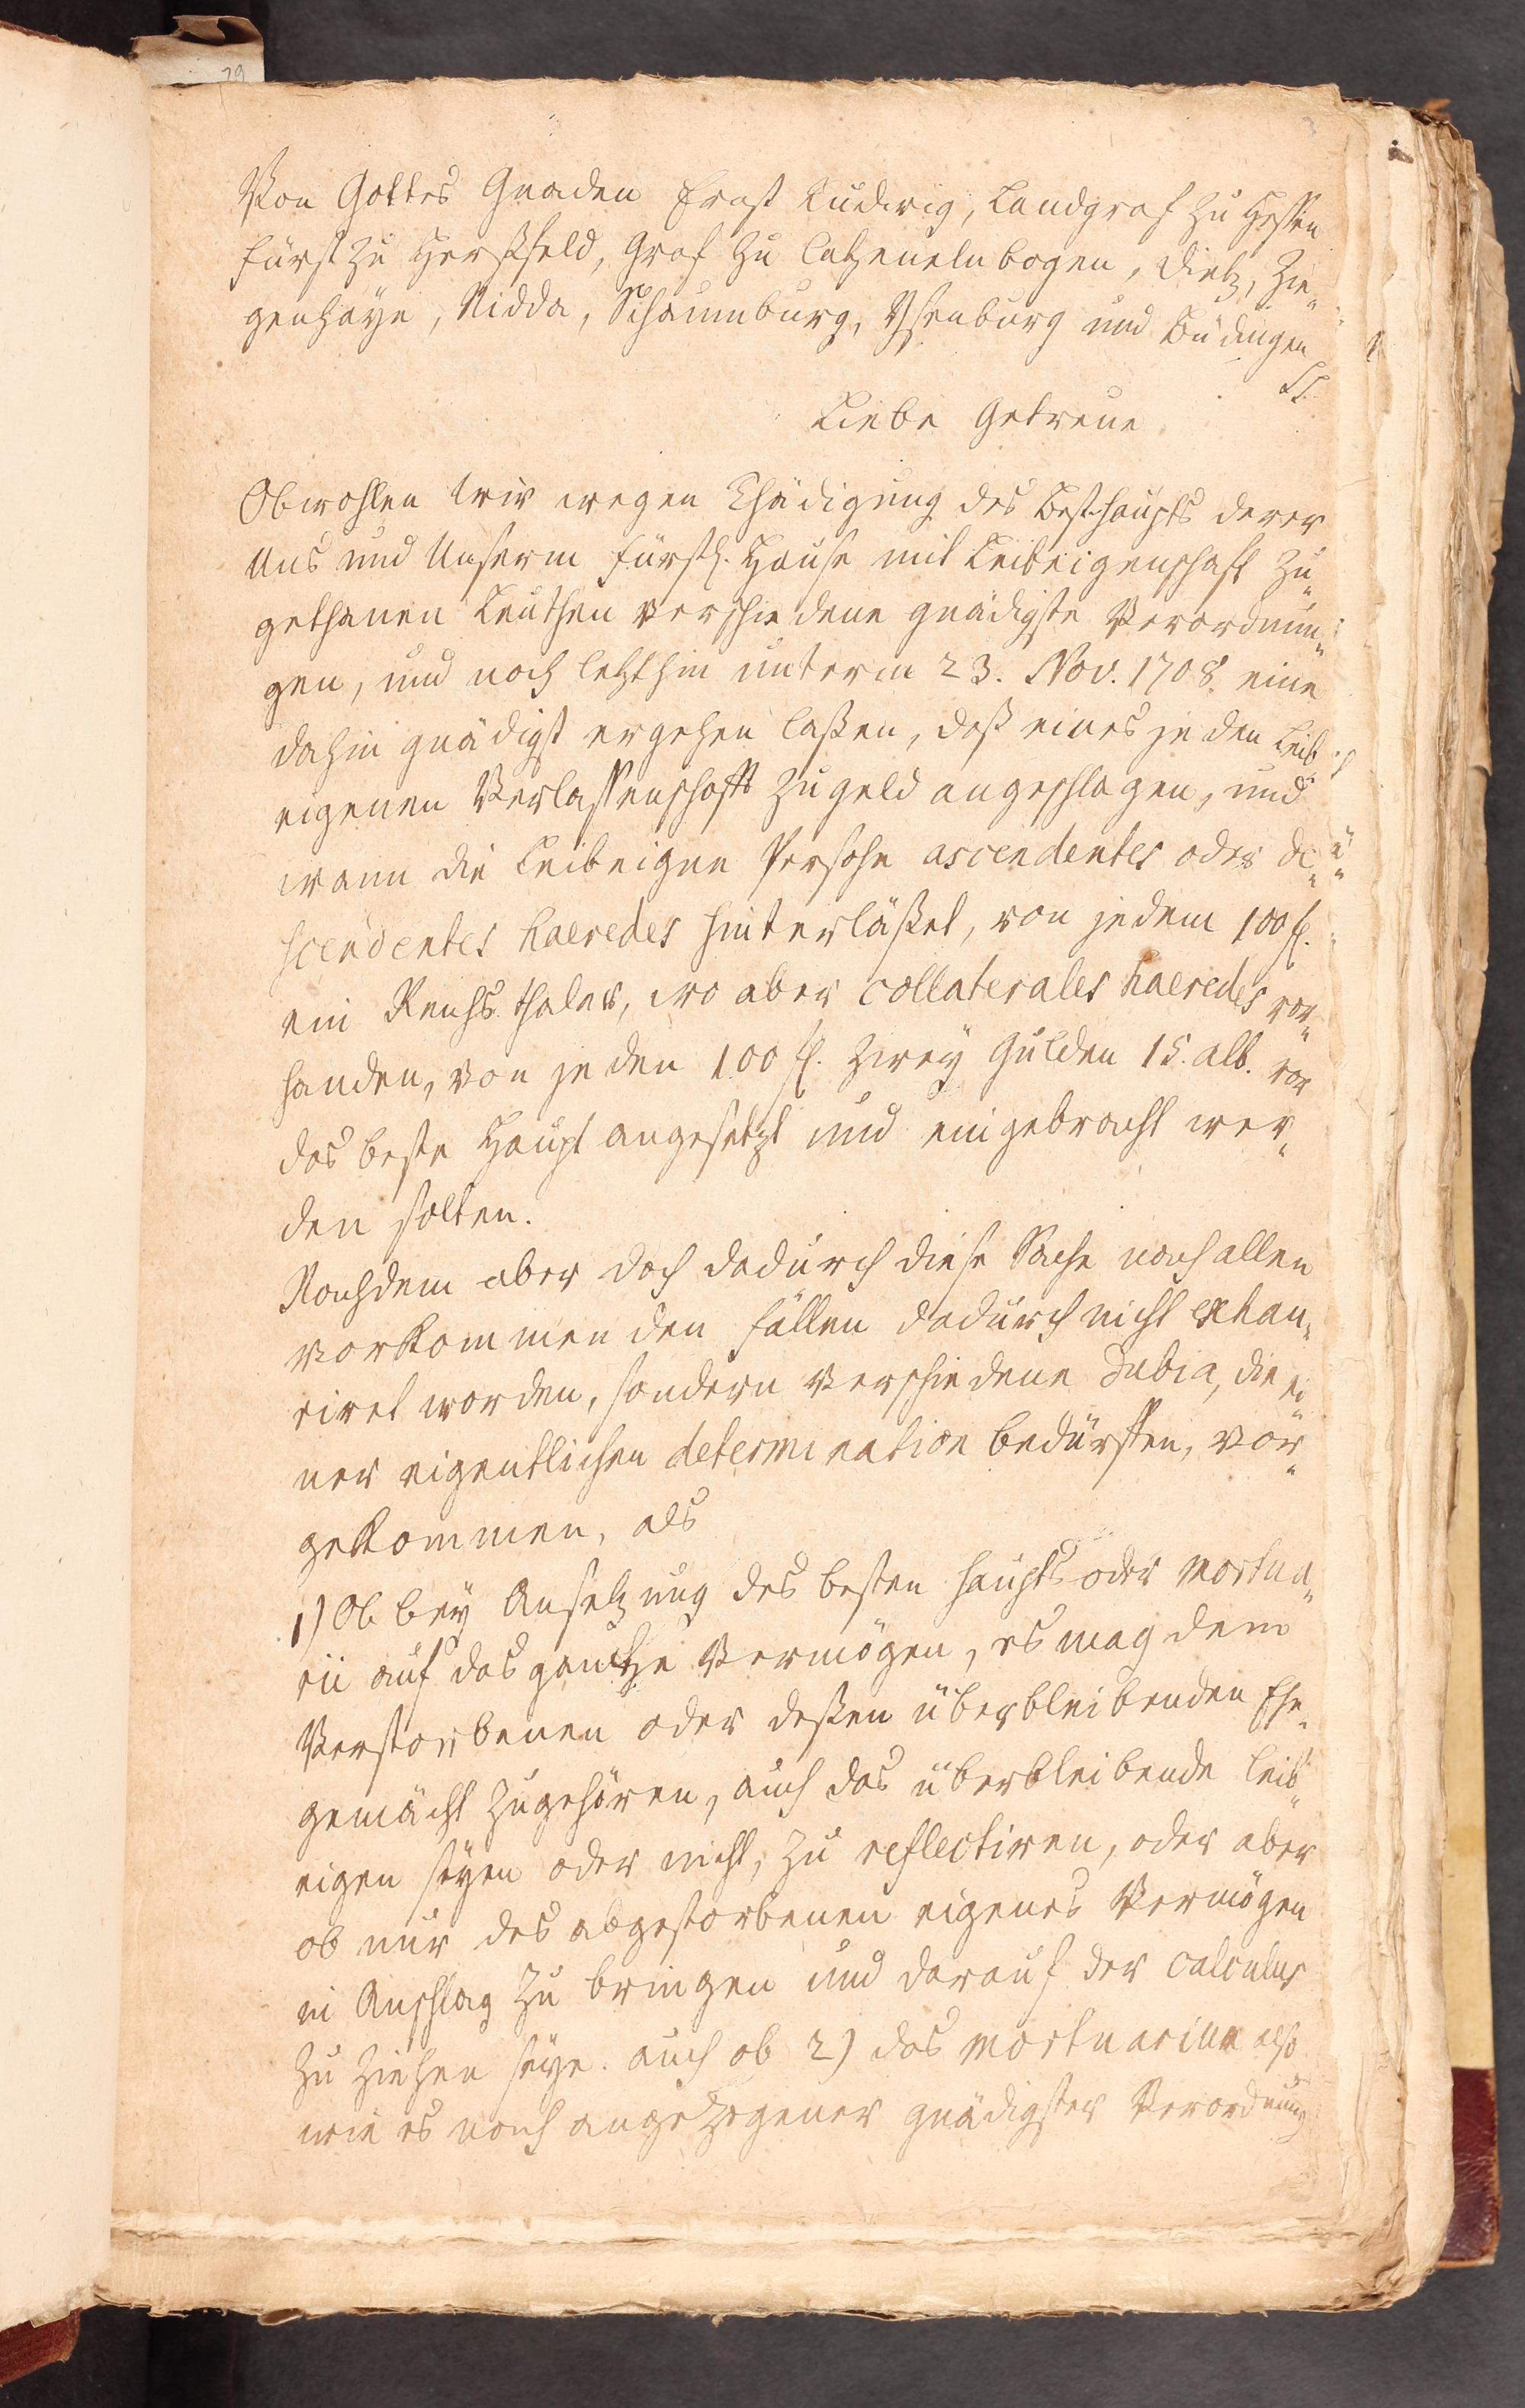 29
Von Gottes Gnaden Ernst Ludwig, Landgraf zu Hessen
Fürst zu Herßfeld, Graf zu Catzenelnbogen, Dietz, Zie„
genhayn, Nidda, Schaumburg, Ysenburg und Büdingen
Liebe Getreue
Obwohlen wir wegen Thädigung des Besthaupts derer
Uns und Unserm Fürstl. Hause mit Leibeigenschaft zu„
gethanen Leuthen verschiedene gnädigste Verordnun„
gen, und noch letzthin unterm 23. Nov. 1708. eine
dahin gnädigst ergehen laßen, daß eines jeden Leib„
eigenen Verlassenschafft zu geld angeschlagen, und
wann die Leibeigne Persohn ascendentes oder de„
scendentes haeredes hinterläßet, von jedem 100 fl.
ein Reichsthaler, wo aber collaterales haeredes vor„
handen, von jeden 100 fl. zwey Gulden 15. alb. vor
das beste Haupt angesetzt und eingebracht wer„
den solten.
Nachdem aber doch dadurch diese Sache nach allen
vorkommenden fällen dadurch nicht exhau„
riret worden, sondern verschiedene Dubia, die ei„
ner eigentlichen determination bedürffen, vor„
gekommen, als
1) Ob bey Ansetzung des besten haupts oder mortua„
rii auf das gantze Vermögen, es mag dem
Verstorbenen oder deßen überbleibenden Ehe„
gemächt zugehören, auch das überbleibende leib„
eigen seyen oder nicht, zu reflectiren, oder aber
ob nur des abgestorbenen eigenes Vermögen
in Anschlag zu bringen und darauf der calculus
zu ziehen seye. auch ob 2) das mortuarium also
wie es nach angezogener gnädigster Verordnung